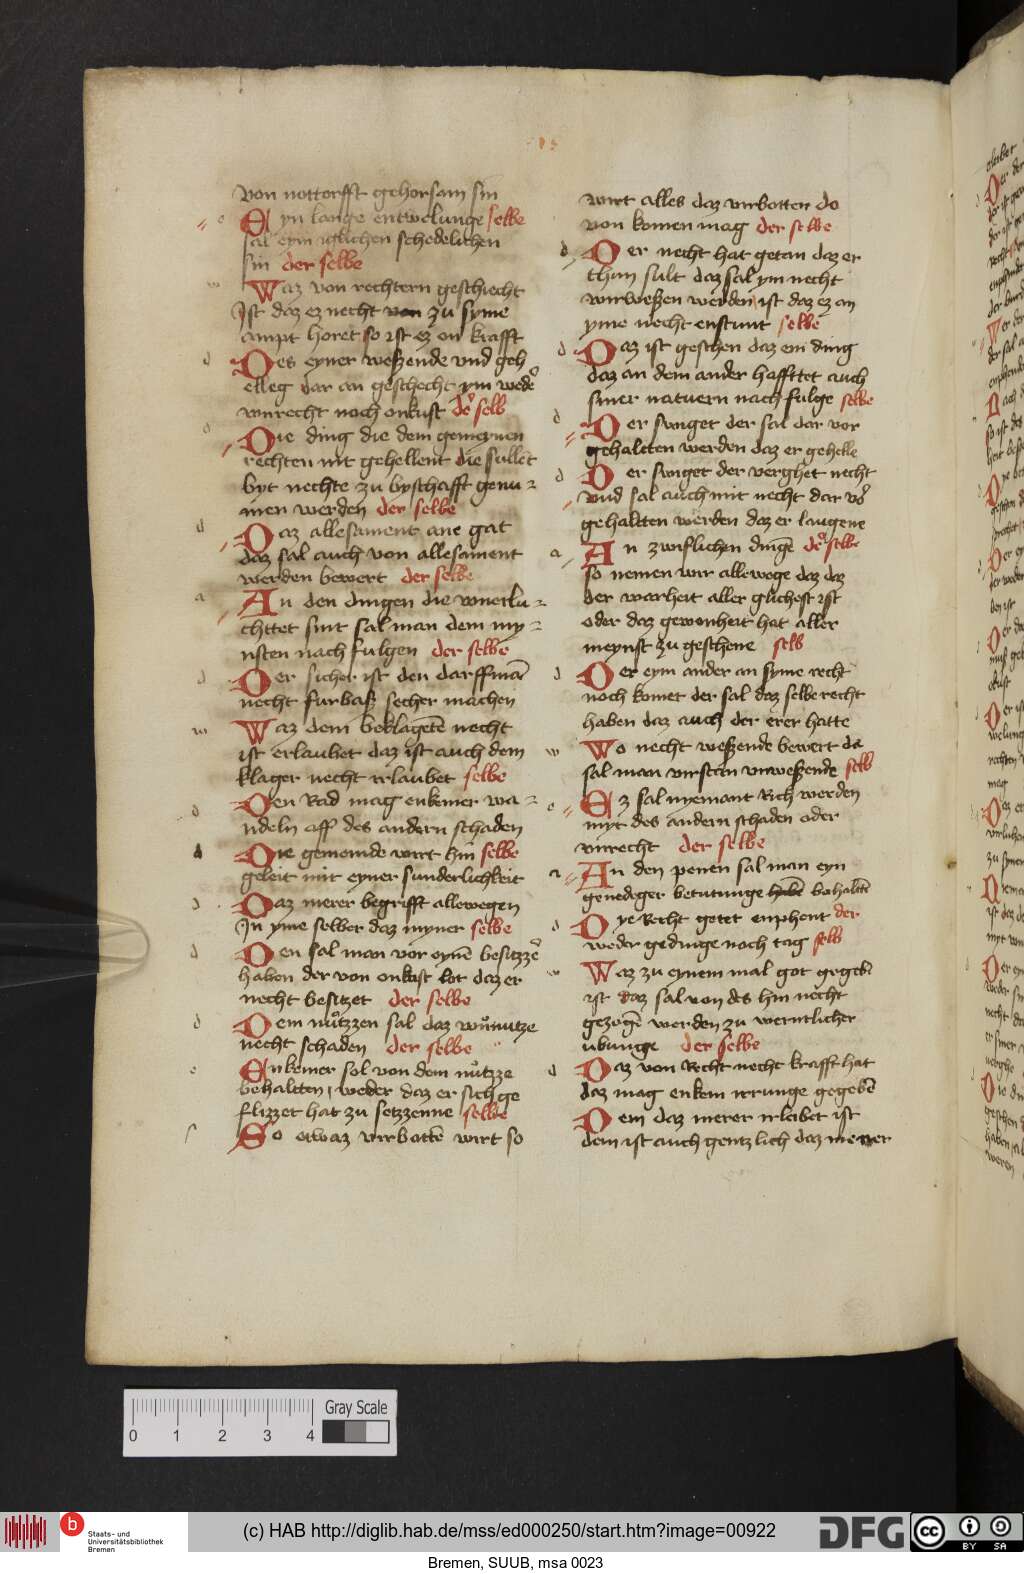 von nottorfft gehorsam sin
Eyn lange entwelunge selbe
sal eym iglichen schedelichen
sin der selbe
Waz von rechtern geschiecht
Ist daz ez necht von zu syme
ampt horet so ist ez on krafft
Des eyner weszende vnd geh
elleg dar an geschecht ym wedē
vnrecht noch onkust der selb
Die ding die dem gemeynen
rechten nit gehellent die sullēt
byt nechte zu byschafft genu
men werden der selbe
Daz allesament ane gat
daz sal auch von allesament
werden bewert der selbe
An den dingen die vnerlu
chttet sint sal man dem my
nsten nach fulgen der selbe
Der sicher ist den darff mā
necht furbasz secher machen
Waz dem beklagetē necht
ist erlaubet daz ist auch dem
klager necht irlaubet selbe
Den Rad mag enkeiner wa
ndeln uff des andern schaden
Die gemeinde wirt hin selbe
geleit mit eyner sunderlichkeit
Daz merer begrifft allewegen
In yme selber daz myner selbe
Den sal man vor eynē besitzzē
haben der von onkust lot daz er
necht besitzet der selbe
Dem nuͦtzzen sal daz vnnutze
necht schaden der selbe
Enkeiner sol von dem nuͦtzze
behaltten, weder daz er sich ge
flizzet hat zu setzzenne selbe
So etwaz virbottē wirt so
wirt alles daz virbotten do
von komen mag der selbe
Der necht hat getan daz er
thun sult daz sal ym necht
virwieszen werden ist daz ez an
yme necht enstunt selbe
Daz ist geschen daz ein ding
daz an dem ander haffttet auch
siner natuern nach fulge selbe
Der swiget der sal dar vor
gehaltten werden daz er gehelle
Der swiget der verghet necht
vnd sal auch mit necht dar vō
gehaltten werden daz er laugene
An zwiflichen dingē der selbe
so nemen wir allewege daz daz
der warheit aller glichest ist
oder daz gewonheit hat aller
meynst zu geschene selb
Der eym ander an syme recht
noch komet der sal daz selbe recht
haben daz auch der erer hatte
Wo necht weszende bewert da
sal man virsteen vnweszende selb
Ez sal nyemant Rich werden
myt des andern schaden oder
vnrecht der selbe
An den penen sal man eyn
genediger betutunge habē behaltē
Dye Recht getet enphent der
weder gedinge noch tag selb
Waz zu eynem mal got gegebē
ist daz sal von des hin necht
gezogē werden zu werntlicher
ubunge der selbe
Daz von Recht necht krafft hat
daz mag enkein irrunge gegebē
Dem daz merer irleibet ist
dem ist auch gentzlich daz merrer
Gray Scale
0 1 2 3 4
Staats- und
Universitätsbibliothek
Bremen
(c) HAB http://diglib.hab.de/mss/ed000250/start.htm?image=00922
DFG
cc BY SA
Bremen, SUUB, msa 0023